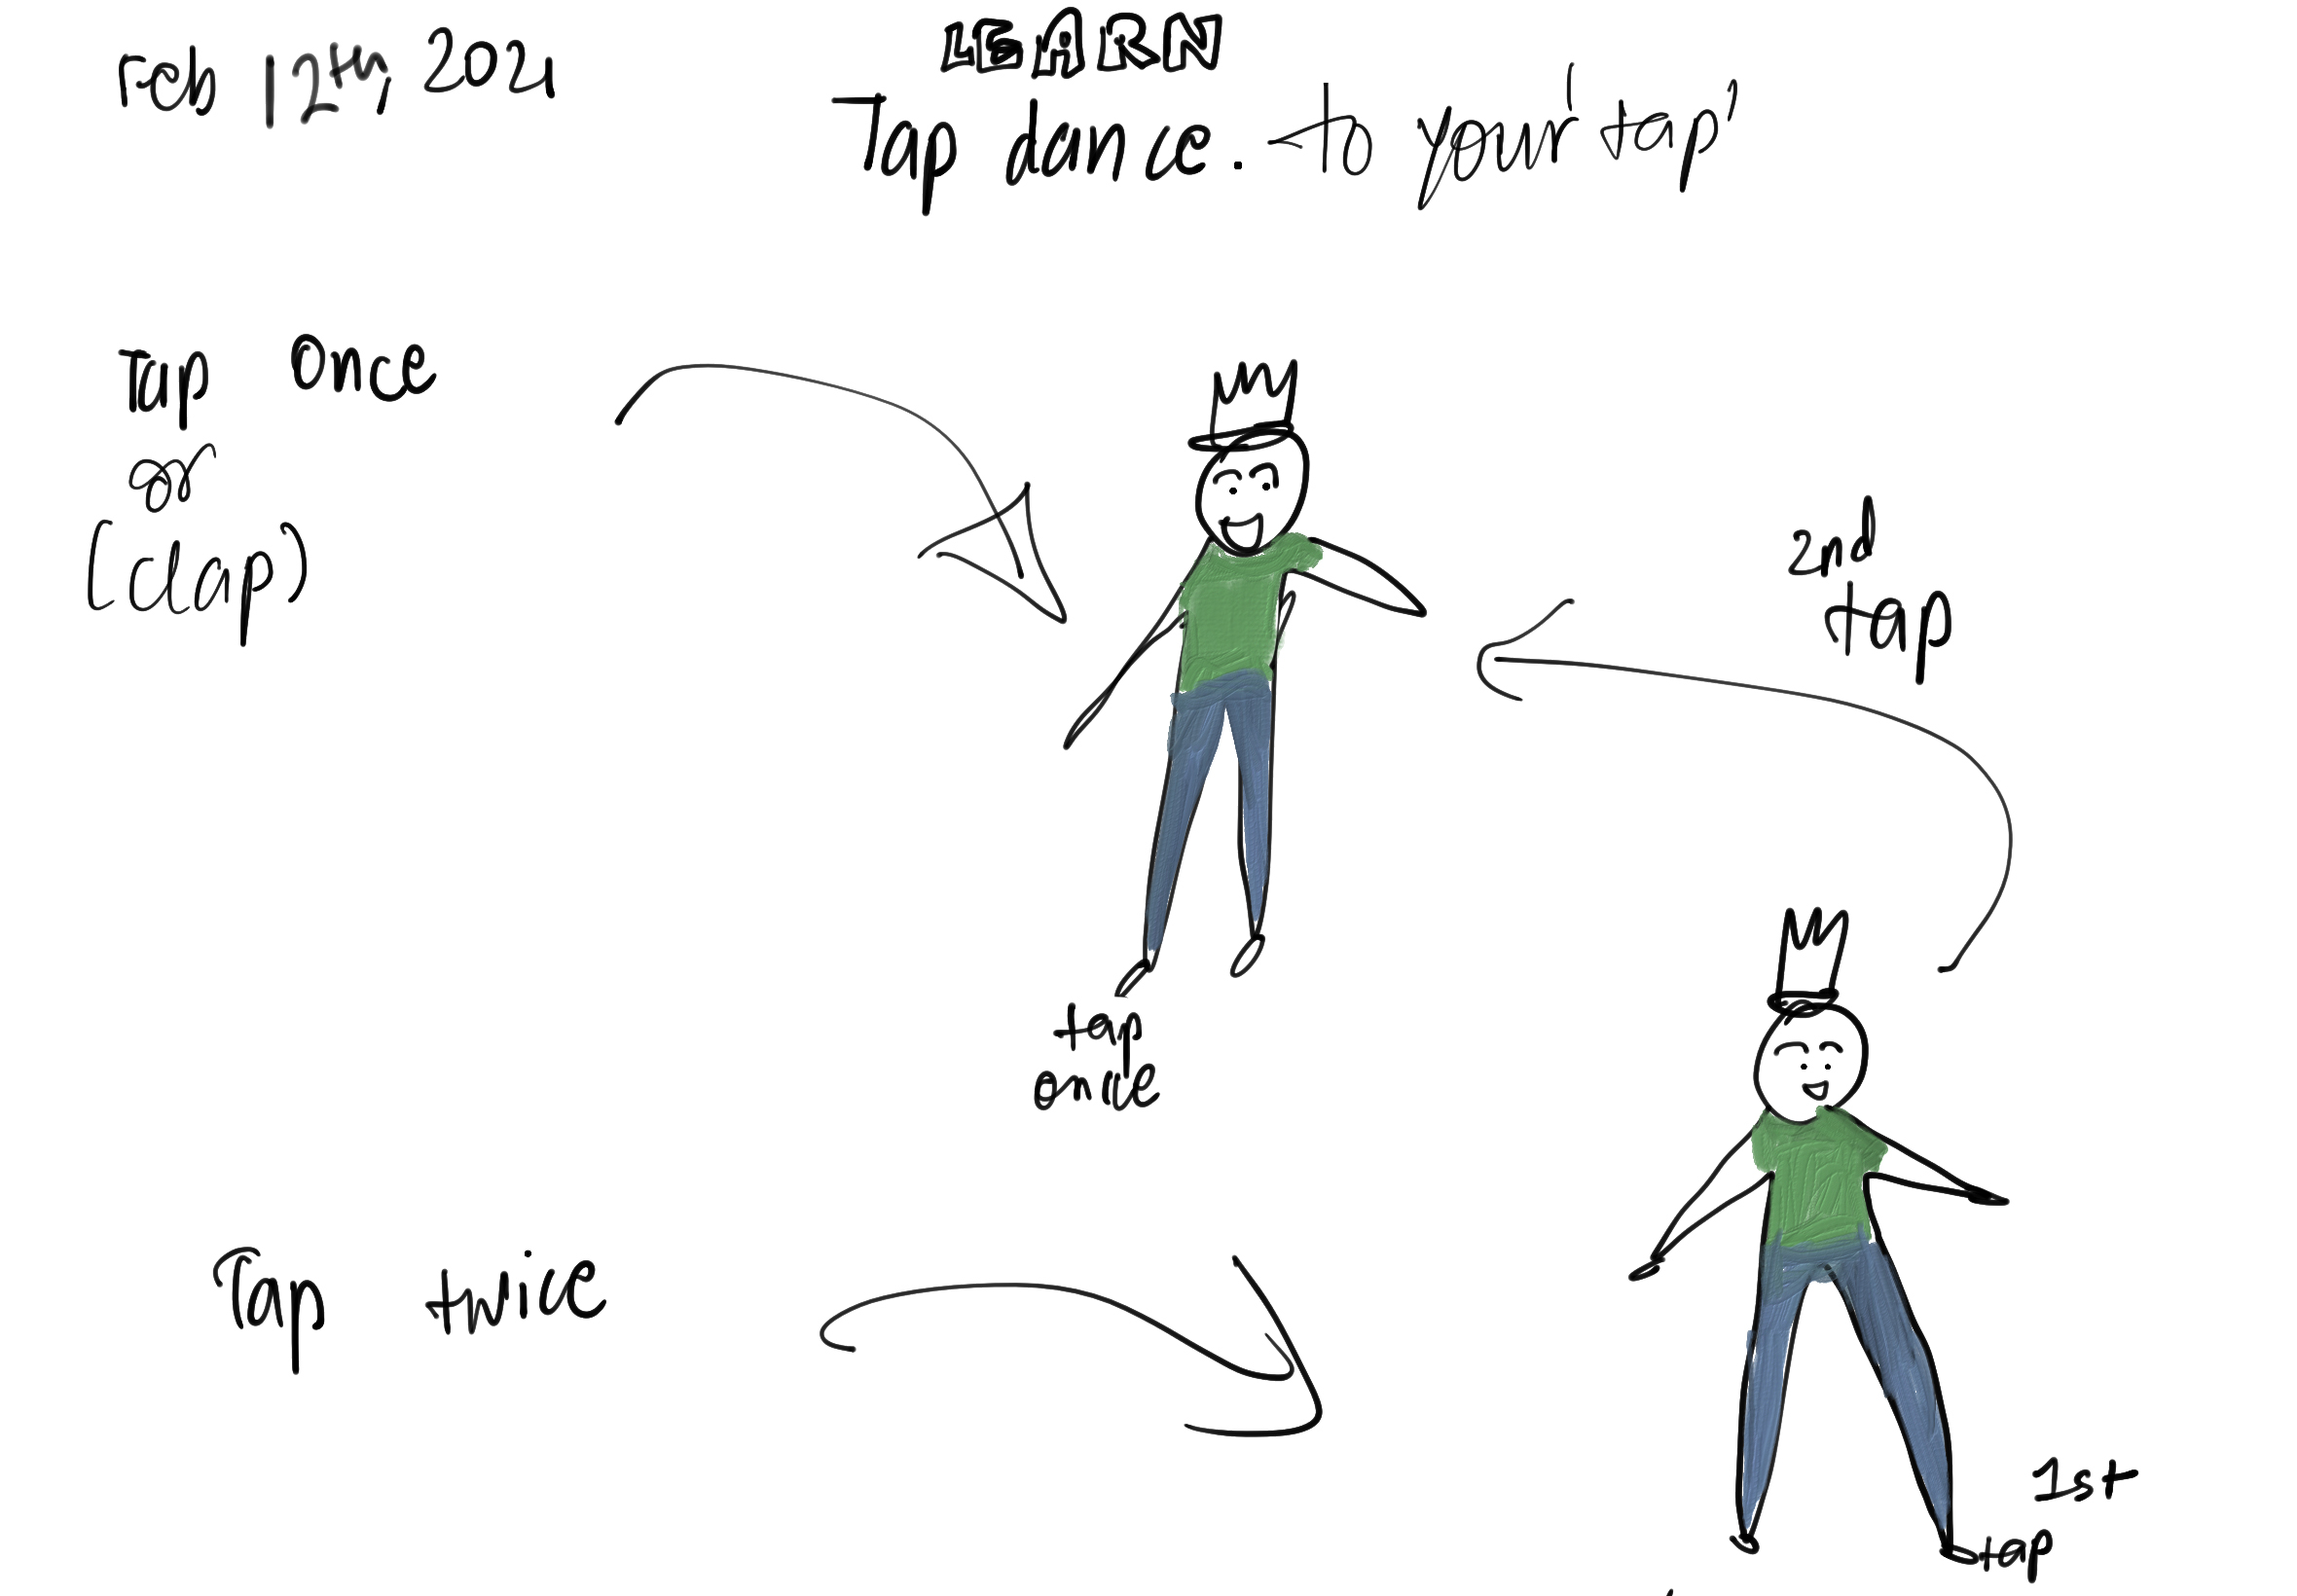 Feb 12th, 2021
LEARN
Tap dance. to your 'tap'
Tap once
or
(clap)
2nd
tap
tap
once
Tap twice
1st
tap